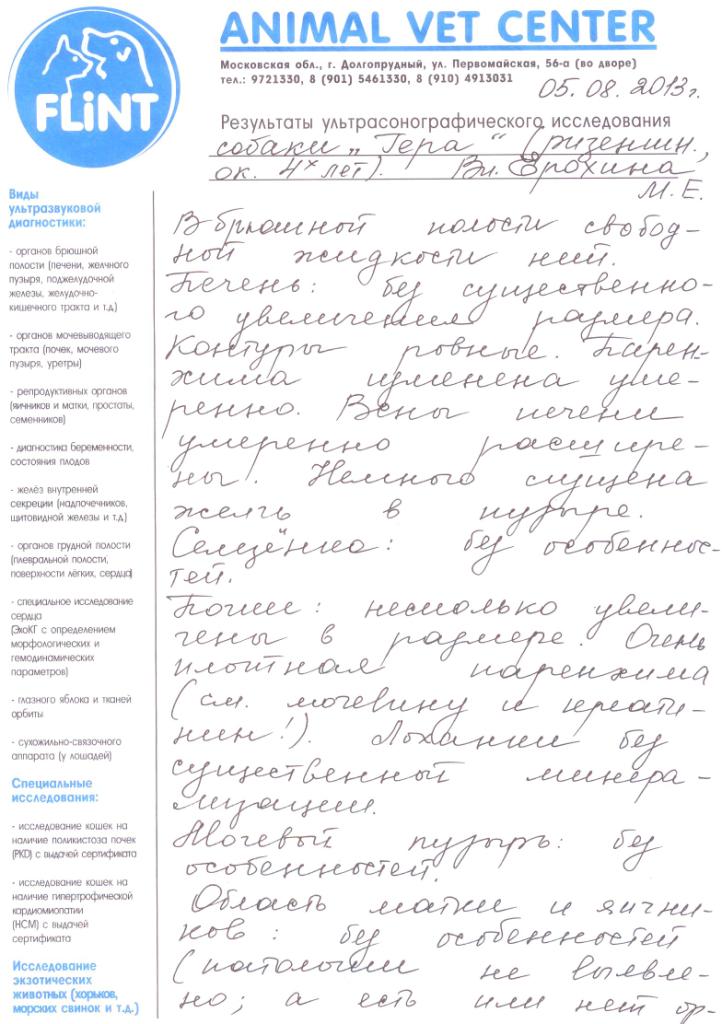 FLiNT
ANIMAL VET CENTER
Московская обл., г. Долгопрудный, ул. Первомайская, 56-а (во дворе)
тел.: 9721330, 8 (901) 5461330, 8 (910) 4913031
05.08.2013г.
Результаты ультрасонографического исследования
собаки „Гера“ (ризеншн.,
ок. 4х лет). Вл. Ерохина
М.Е.
Виды
ультразвуковой
диагностики:
- органов брюшной
полости (печени, желчного
пузыря, поджелудочной
железы, желудочно-
кишечного тракта и т.д)
- органов мочевыводящего
тракта (почек, мочевого
пузыря, уретры)
- репродуктивных органов
(яичников и матки, простаты,
семенников)
- диагностика беременности,
состояния плодов
- желёз внутренней
секреции (надпочечников,
щитовидной железы и т.д)
- органов грудной полости
(плевральной полости,
поверхности лёгких, сердца)
- специальное исследование
сердца
(ЭхоКГ с определением
морфологических и
гемодинамических
параметров)
- глазного яблока и тканей
орбиты
- сухожильно-связочного
аппарата (у лошадей)
Специальные
исследования:
- исследование кошек на
наличие поликистоза почек
(PKD) с выдачей сертификата
- исследование кошек на
наличие гипертрофической
кардиомиопатии
(HCM) с выдачей
сертификата
Исследование
экзотических
животных (хорьков,
морских свинок и т.д.)
В брюшной полости свобод-
ной жидкости нет.
Печень: без существенно-
го увеличения размера.
Контуры ровные. Парен-
хима изменена уме-
ренно. Вены печени
умеренно расшире-
ны. Немного сгущена
желчь в пузыре.
Селезёнка: без особеннос-
тей.
Почки: несколько увели-
чены в размере. Очень
плотная паренхима
(см. мочевину и креати-
нин!). Лоханки без
существенной минера-
лизации.
Мочевой пузырь: без
особенностей.
Область матки и яични-
ков: без особенностей
(патологии не выявле-
но; а есть или нет ор-